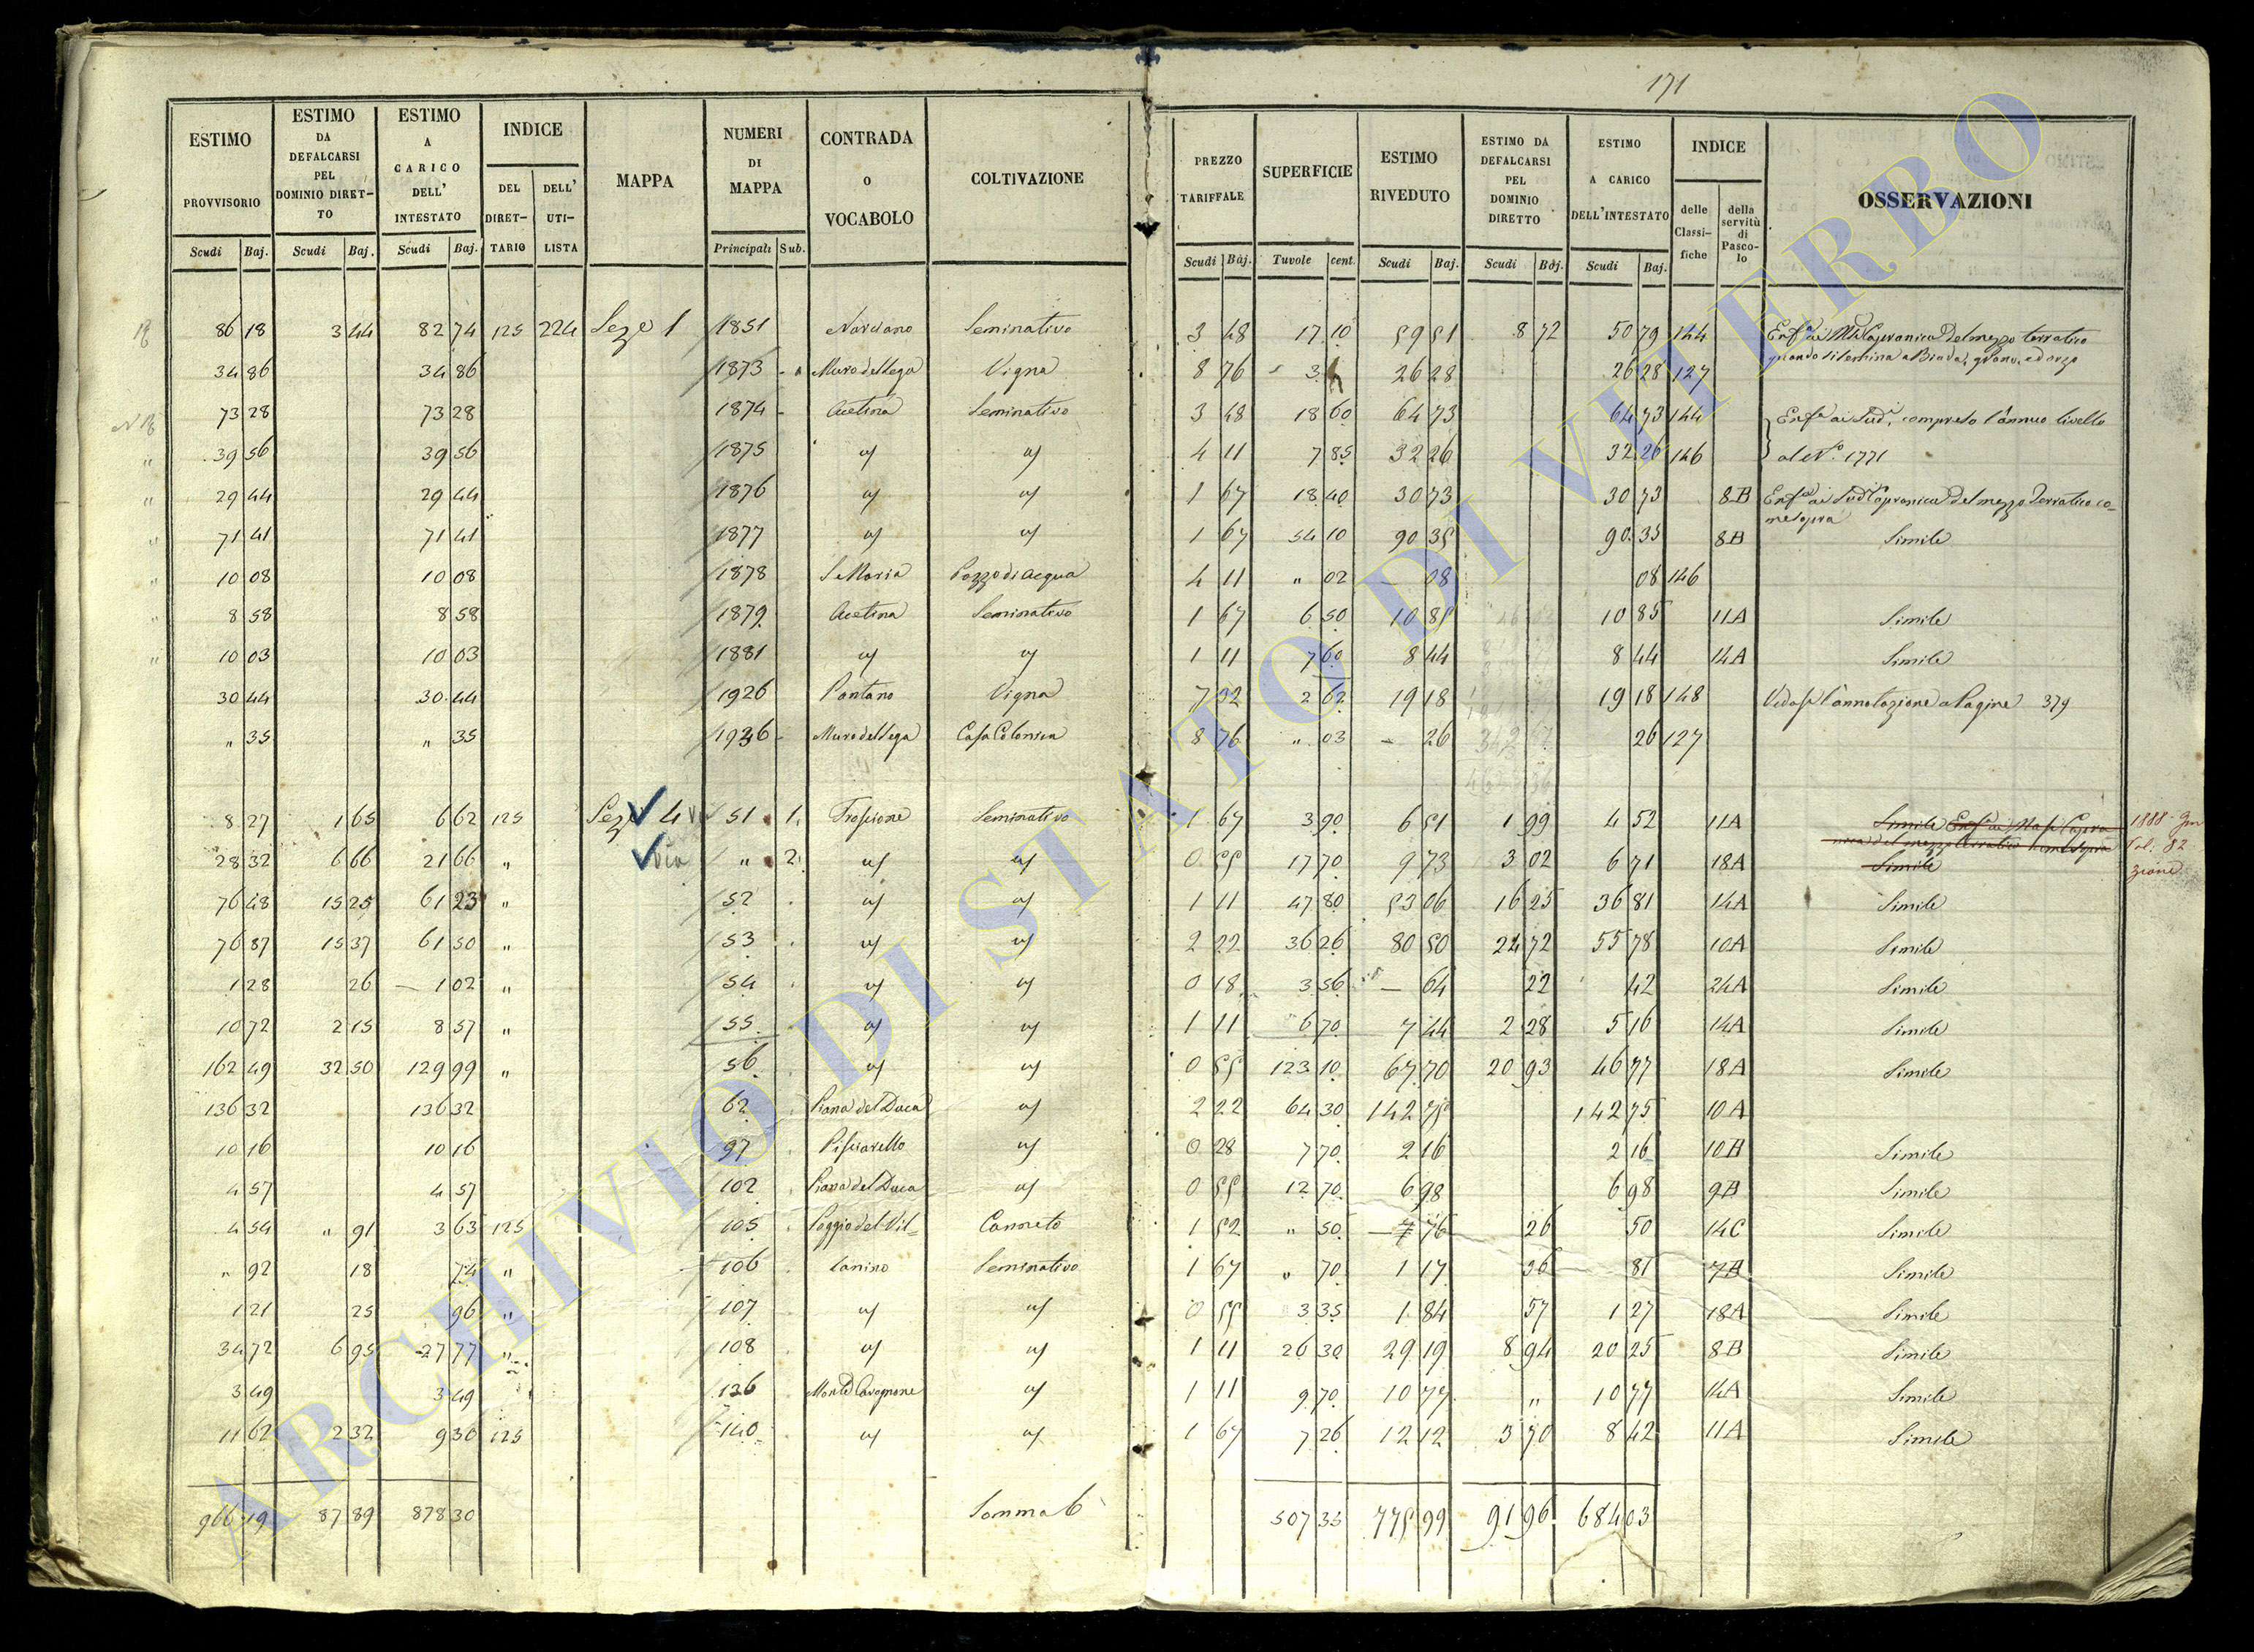 171
ESTIMO PROVVISORIO | ESTIMO DA DEFALCARSI PEL DOMINIO DIRETTO | ESTIMO A CARICO DELL' INTESTATO | INDICE DEL DIRETTARIO | DELL' UTILISTA | MAPPA | NUMERI DI MAPPA | CONTRADA O VOCABOLO | COLTIVAZIONE | PREZZO TARIFFALE | SUPERFICIE | ESTIMO RIVEDUTO | ESTIMO DA DEFALCARSI PEL DOMINIO DIRETTO | ESTIMO A CARICO DELL'INTESTATO | INDICE delle Classifiche | della servitù di Pascolo | OSSERVAZIONI
Scudi Baj. | Scudi Baj. | Scudi Baj. | Principali Sub. | Scudi Baj. | Tuvole cent. | Scudi Baj. | Scudi Baj. | Scudi Baj.
86 18 | 3 44 | 82 74 | 125 | 224 | Seze 1 | 1851 | Nardano | Seminativo | 3 48 | 17 10 | 59 51 | 8 72 | 50 79 | 144 | del mezzo terratico
34 86 | 34 86 | 1873 | Muro del lega | Vigna | 8 76 | 3 | 26 28 | 26 28 | 127 | quando si semina a Biada, grano, ed orzo
73 28 | 73 28 | 1874 | Acetina | Seminativo | 3 48 | 18 60 | 64 73 | 64 73 | 144 | compreso l'annuo livello
39 56 | 39 56 | 1875 | 4 11 | 7 85 | 32 26 | 32 26 | 146 | al N.º 1771
29 44 | 29 44 | 1876 | 1 67 | 18 40 | 30 73 | 30 73 | 8B | del mezzo Terratico co-
me sopra
71 41 | 71 41 | 1877 | 1 67 | 54 10 | 90 35 | 90 35 | 8B | Simile
10 08 | 10 08 | 1878 | S. Maria | Pozzo di acqua | 4 11 | " 02 | - 08 | 08 | 146
8 58 | 8 58 | 1879 | Acetina | Seminativo | 1 67 | 6 50 | 10 85 | 10 85 | 11A | Simile
10 03 | 10 03 | 1881 | 1 11 | 7 60 | 8 44 | 8 44 | 14A | Simile
30 44 | 30 44 | 1926 | Pantano | Vigna | 7 32 | 2 62 | 19 18 | 19 18 | 148 | Vedasi l'annotazione a Pagine 379
" 35 | " 35 | 1936 | Muro del lega | Casa Colonica | 8 76 | " 03 | - 26 | 26 | 127
8 27 | 1 65 | 6 62 | 125 | Seze 4 | 51 | 1 | Troscione | Seminativo | 1 67 | 3 90 | 6 51 | 1 99 | 4 52 | 11A | Simile | 1888
28 32 | 6 66 | 21 66 | " | " | 2 | 0 55 | 17 70 | 9 73 | 3 02 | 6 71 | 18A | Simile | Vol: 82
76 48 | 15 25 | 61 23 | " | 52 | 1 11 | 47 80 | 53 06 | 16 25 | 36 81 | 14A | Simile
76 87 | 15 37 | 61 50 | " | 53 | 2 22 | 36 26 | 80 50 | 24 72 | 55 78 | 10A | Simile
1 28 | 26 | 1 02 | " | 54 | 0 18 | 3 56 | - 64 | 22 | 42 | 24A | Simile
10 72 | 2 15 | 8 57 | " | 55 | 1 11 | 6 70 | 7 44 | 2 28 | 5 16 | 14A | Simile
162 49 | 32 50 | 129 99 | " | 56 | 0 55 | 123 10 | 67 70 | 20 93 | 46 77 | 18A | Simile
136 32 | 136 32 | 62 | Piana del Duca | 2 22 | 64 30 | 142 75 | 142 75 | 10A
10 16 | 10 16 | 97 | Pisciarello | 0 28 | 7 70 | 2 16 | 2 16 | 10B | Simile
4 57 | 4 57 | 102 | Piana del Duca | 0 55 | 12 70 | 6 98 | 6 98 | 9B | Simile
4 54 | " 91 | 3 63 | 125 | 105 | Poggio del Vil= | Canneto | 1 52 | " 50 | 76 | 26 | 50 | 14C | Simile
" 92 | 18 | 74 | " | 106 | lanino | Seminativo | 1 67 | " 70 | 1 17 | 36 | 81 | 7B | Simile
1 21 | 25 | 96 | " | 107 | 0 55 | 3 35 | 1 84 | 57 | 1 27 | 18A | Simile
34 72 | 6 95 | 27 77 | " | 108 | 1 11 | 26 30 | 29 19 | 8 94 | 20 25 | 8B | Simile
3 49 | 3 49 | 136 | Monte Cavagnone | 1 11 | 9 70 | 10 77 | " | 10 77 | 14A | Simile
11 62 | 2 32 | 9 30 | 125 | 140 | 1 67 | 7 26 | 12 12 | 3 70 | 8 42 | 11A | Simile
966 19 | 87 89 | 878 30 | Somma 6 | 507 35 | 775 99 | 91 96 | 684 03
ARCHIVIO DI STATO DI VITERBO